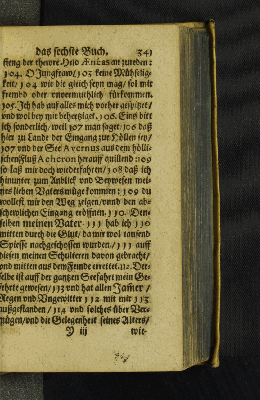 das sechste Buch. 341
fieng der thewre Held Æneas an zu reden:
104. O Jungfraw/ 103 keine Mühselig-
keit/ 104 wie die gleich seyn mag/ sol mir
frembd oder unvermuthlich fürkommen.
105. Ich hab auff alles mich vorher gespitzet/
und wol bey mit behertziget. 106. Eins bitt
ich sonderlich/ weil 107 man saget: 106 daß
hier zu Lande der Eingang zur Höllen sey/
107 und der See Avernus auß dem hölli-
schen Fluß Acheron herauff quillend: 109
so laß mir doch wiederfahren/ 108 daß ich
hinunter zum Anblick und Beywesen mei-
nes lieben Vaters müge kommen: 109 du
wollest mir den Weg zeigen/ unnd den ab-
schewlichen Eingang eröffnen. 110. Den-
selben meinen Vater 111 hab ich 110
mitten durch die Glut/ da mir wol tausend
Spiesse nachgeschossen wurden/ 111 auff
diesen meinen Schulteren davon gebracht/
und mitten aus dem Feinde errettet. 112. Der-
selbe ist auff der gantzen Seefahrt mein Ge-
fehrte gewesen/ 113 und hat allen Jamer/
Regen und Ungewitter 112 mit mir 113
außgestanden/ 114 und solches über Ver-
mügen/ und die Gelegenheit seines Alters/
Y iij wie-